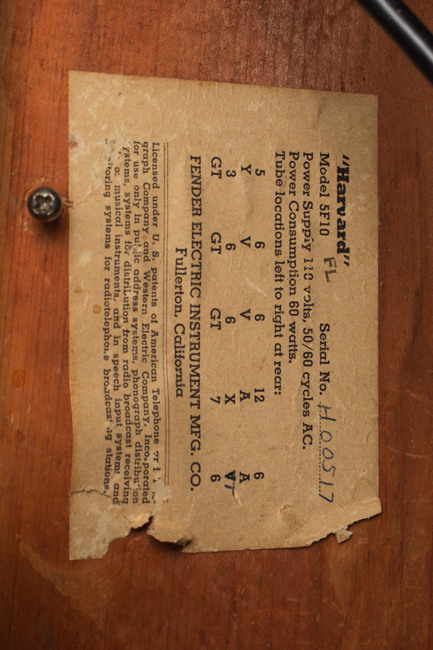 "Harvard"
Model 5F10 FL Serial No. H00517
Power Supply 110 volts, 50/60 cycles AC.
Power Consumption 60 watts.
Tube locations left to right at rear:
5 6 6 12 6
Y V V A A
3 6 6 X
GT GT GT 7 6
FENDER ELECTRIC INSTRUMENT MFG. CO.
Fullerton, California
Licensed under U. S. patents of American Telephone
graph Company and Western Electric Company, Incorporated
for use only in public address systems, phonograph distribution
systems, systems for distribution from radio broadcast receiving
musical instruments, and in speech input systems and
systems for radiotelephone broadcasting stations.